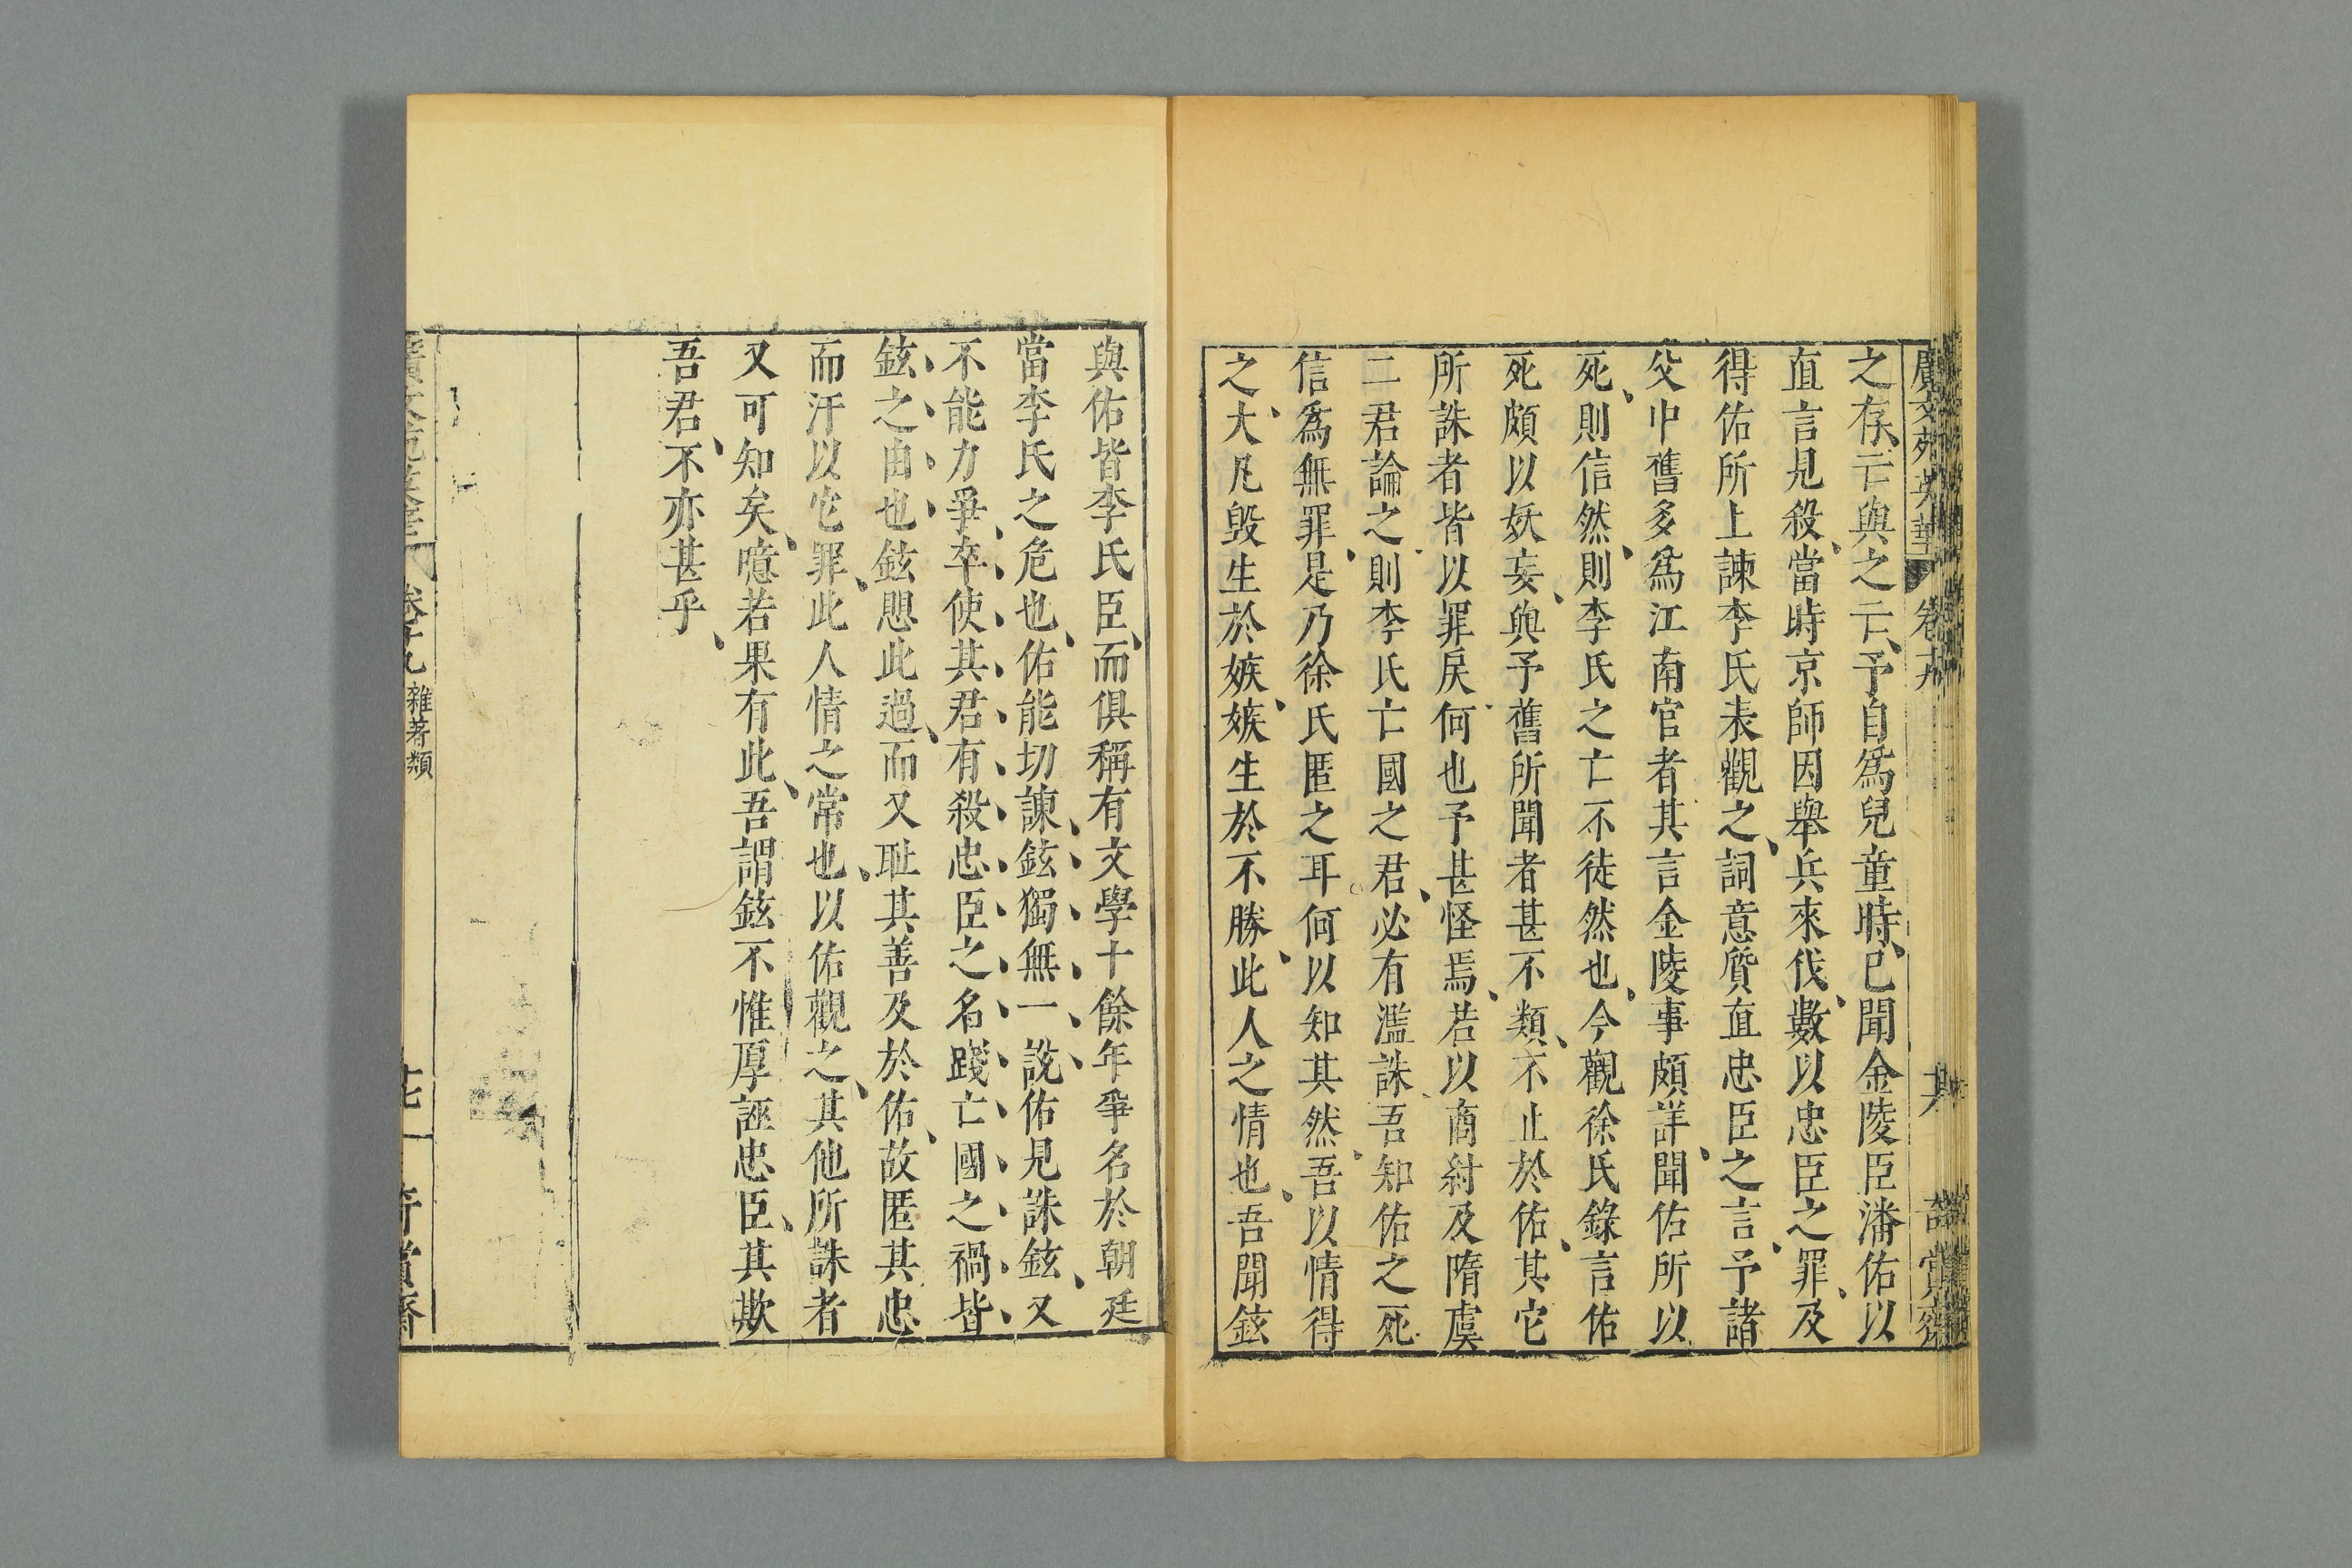 廣文苑英華 卷十九 其 奇賞齋
之存亡與之亡予自爲兒童時已聞金陵臣潘佑以
直言見殺當時京師因舉兵來伐數以忠臣之罪及
得佑所上諫李氏表觀之詞意質直忠臣之言予諸
父中舊多爲江南官者其言金陵事頗詳聞佑所以
死則信然則李氏之亡不徒然也今觀徐氏錄言佑
死頗以妖妄與予舊所聞者甚不類不止於佑其它
所誅者皆以罪戾何也予甚怪焉若以商紂及隋虞
二君論之則李氏亡國之君必有濫誅吾知佑之死
信爲無罪是乃徐氏匿之耳何以知其然吾以情得
之大凡毀生於嫉嫉生於不勝此人之情也吾聞鉉
與佑皆李氏臣而俱稱有文學十餘年爭名於朝廷
當李氏之危也佑能切諫鉉獨無一說佑見誅鉉又
不能力爭卒使其君有殺忠臣之名踐亡國之禍皆
鉉之由也鉉懼此過而又耻其善及於佑故匿其忠
而汙以它罪此人情之常也以佑觀之其他所誅者
又可知矣噫若果有此吾謂鉉不惟厚誣忠臣其欺
吾君不亦甚乎
廣文苑英華 卷十九 雜著類 七 奇賞齋